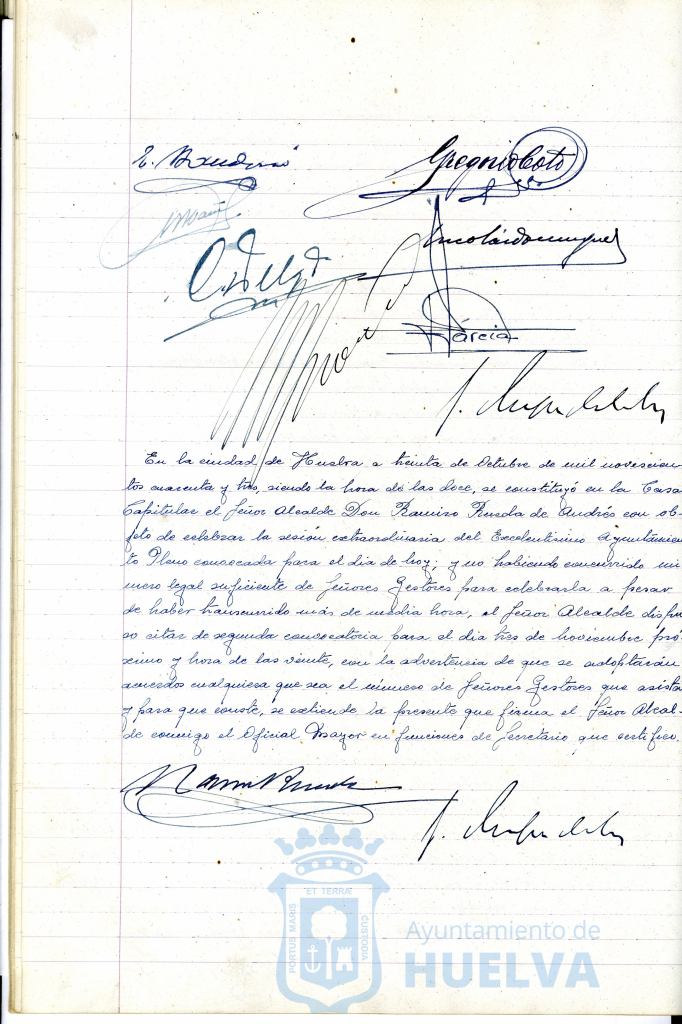 Gregorio Coto
García
En la ciudad de Huelva a treinta de Octubre de mil novescien-
tos cuarenta y tres, siendo la hora de las doce, se constituyó en la Casa
Capitular el Señor Alcalde Don Ramiro Rueda de Andrés con ob-
jeto de celebrar la sesión extraordinaria del Excelentísimo Ayuntamien-
to Pleno convocada para el dia de hoy; y no habiendo concurrido nú-
mero legal suficiente de Señores Gestores para celebrarla a pesar
de haber transcurrido más de media hora, el Señor Alcalde dispu-
so citar de segunda convocatoria para el dia tres de noviembre pró-
ximo y hora de las veinte, con la advertencia de que se adoptarán
acuerdos cualquiera que sea el número de Señores Gestores que asista
y para que conste, se extiende la presente que firma el Señor Alcal-
de conmigo el Oficial Mayor en funciones de Secretario que certifico.
ET TERRÆ
PORTUS MARIS
CUSTODIA
Ayuntamiento de
HUELVA